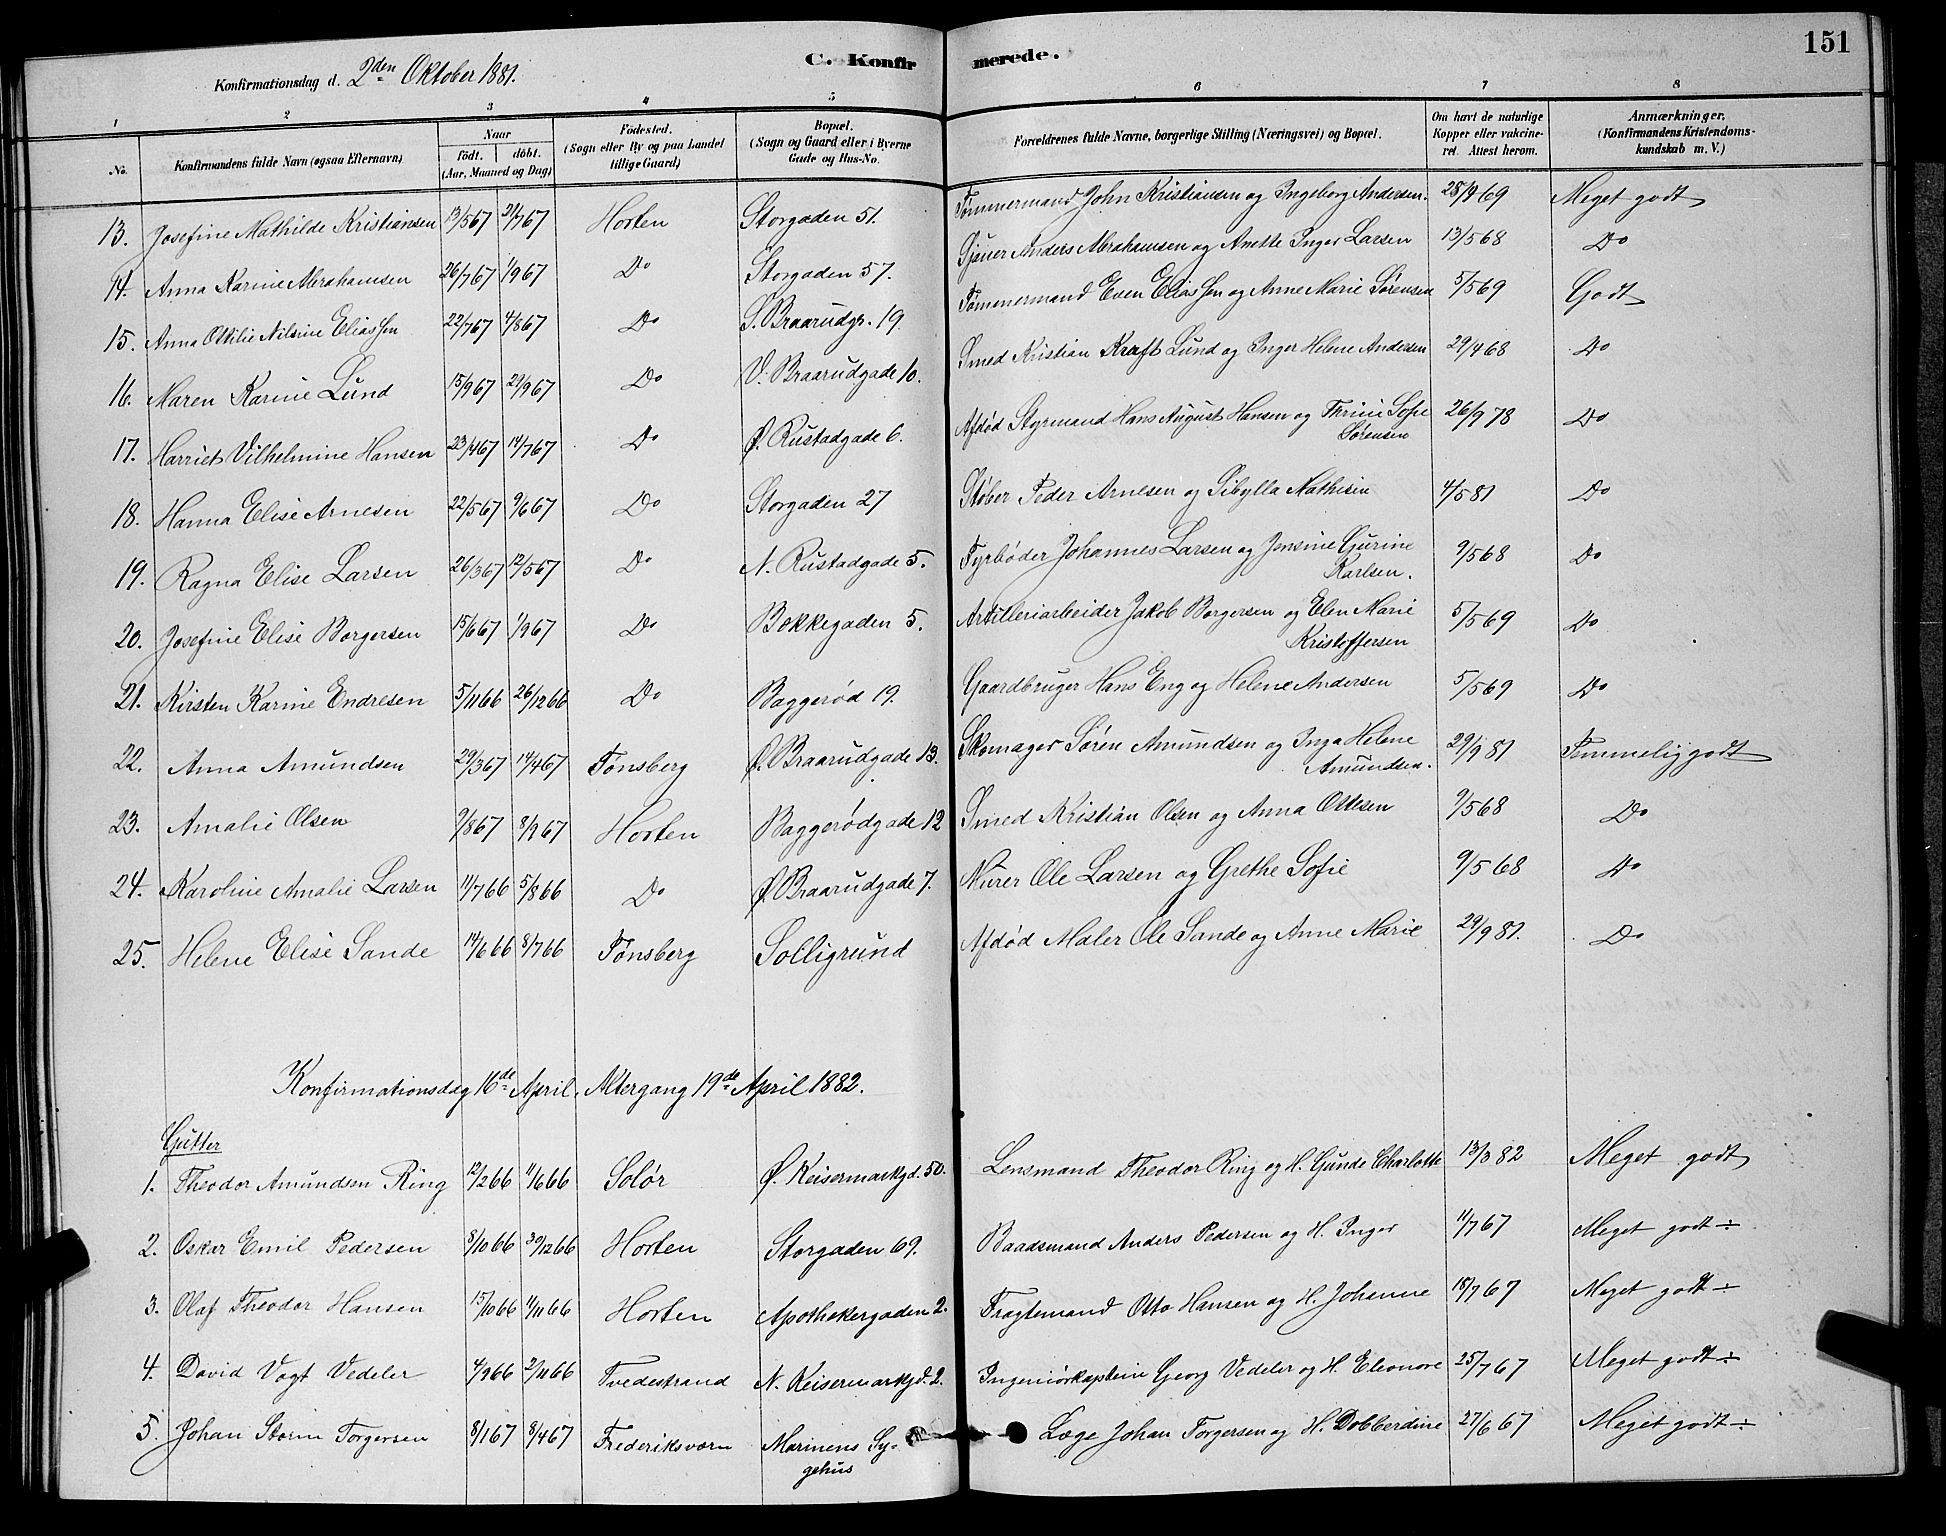 151
Konfirmationsdag d. 2den Oktober 1881.
C. Konfirmerede.
1 2 3 4 5 6 7 8
No. Konfirmandens fulde Navn (ogsaa Efternavn) Naar født. døbt. (Aar, Maaned og Dag) Fødested. (Sogn eller By og paa Landet tillige Gaard) Bopæl. (Sogn og Gaard eller i Byerne Gade og Hus-No. Forældrenes fulde Navne, borgerlige Stilling (Næringsvei) og Bopæl. Om havt de naturlige Kopper eller vakcineret. Attest herom. Anmærkninger. (Konfirmandens Kristendomskundskab m. V.)
13. Josefine Mathilde Kristiansen 13/5 67 21/7 67 Horten Storgaden 51. Tømmermand John Kristiansen og Ingeborg Andersen. 28/4 69 Meget godt
14. Anna Karine Abrahamsen 26/7 67 1/9 67 Do Storgaden 57. Anders Abrahamsen og Anette Inger Larsen 13/5 68 Do
15. Anna Ottilie Nilsine Eliassen 22/7 67 4/8 67 Do S. Braarudgr. 19. Tømmermand Even Eliassen og Anne Marie Sørensen 5/5 69 Godt
16. Maren Karine Lund 15/9 67 29/9 67 Do V. Braarudgade 10. Smed Kristian Kraft Lund og Inger Helene Andersen 29/4 68 Do
17. Harriet Vilhelmine Hansen 23/4 67 14/7 67 Do Ø. Rustadgade 6. Afdød Styrmand Hans August Hansen og Thrine Sofie
Sørensen 26/9 78 Do
18. Hanna Elise Arnesen 22/5 67 9/6 67 Do Storgaden 27 Støber Peder Arnesen og Sibylla Mathisen 4/5 81 Do
19. Ragna Elise Larsen 26/3 67 12/5 67 Do N. Rustadgade 5. Fyrbøder Johannes Larsen og Jensine Gurine
Karlsen. 9/5 68 Do
20. Josefine Elise Borgersen 15/6 67 1/9 67 Do Bekkegaden 5. Artilleriarbeider Jakob Borgersen og Elen Marie
Kristoffersen 5/5 69 Do
21. Kirsten Karine Endresen 5/11 66 26/12 66 Do Baggerød 19. Gaardbruger Hans Eng og Helene Andersen 5/5 69 Do
22. Anna Amundsen 29/3 67 14/4 67 Tønsberg Ø. Braarudgade 13. Skomager Søren Amundsen og Inga Helene
Amundsen. 29/9 81 Temmelig godt
23. Amalie Olsen 9/8 67 8/9 67 Horten Baggerødgade 12 Smed Kristian Olsen og Anna Ottesen 9/5 68 Do
24. Karoline Amalie Larsen 11/7 66 5/8 66 Do Ø. Braarudgade 7. Murer Ole Larsen og Grethe Sofie 9/5 68 Do
25. Helene Elise Sande 14/6 66 8/7 66 Tønsberg Solligrund Afdød Maler Ole Sande og Anne Marie 29/9 81. Do
Konfirmationsdag 16de April, Altergang 19de April 1882.
Gutter
1. Theodor Amundsen Ring 12/2 66 11/6 66 Solør Ø. Keisermarkgd. 50. Lensmand Theodor Ring og H. Gunda Charlotte 13/3 82 Meget godt
2. Oskar Emil Pedersen 8/10 66 30/12 66 Horten Storgaden 69. Baadsmand Anders Pedersen og H. Inger 11/7 67 Meget godt ÷
3. Olaf Theodor Hansen 15/10 66 11/11 66 Horten Apothekergaden 2. Fragtemand Otto Hansen og H. Johanne 18/7 67 Meget godt ÷
4. David Vogt Vedeler 4/9 66 2/11 66 Tvedestrand N. Keisermarkgd. 2. Ingeniørkaptein Georg Vedeler og H. Eleonore 25/7 67 Meget godt ÷
5. Johan Storm Torgersen 8/1 67 8/4 67 Frederiksværn Marinens Sy-
gehus Læge Johan Torgersen og H. Dobberdine 27/6 67 Meget godt ÷